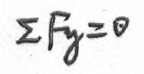 ΣFy=0